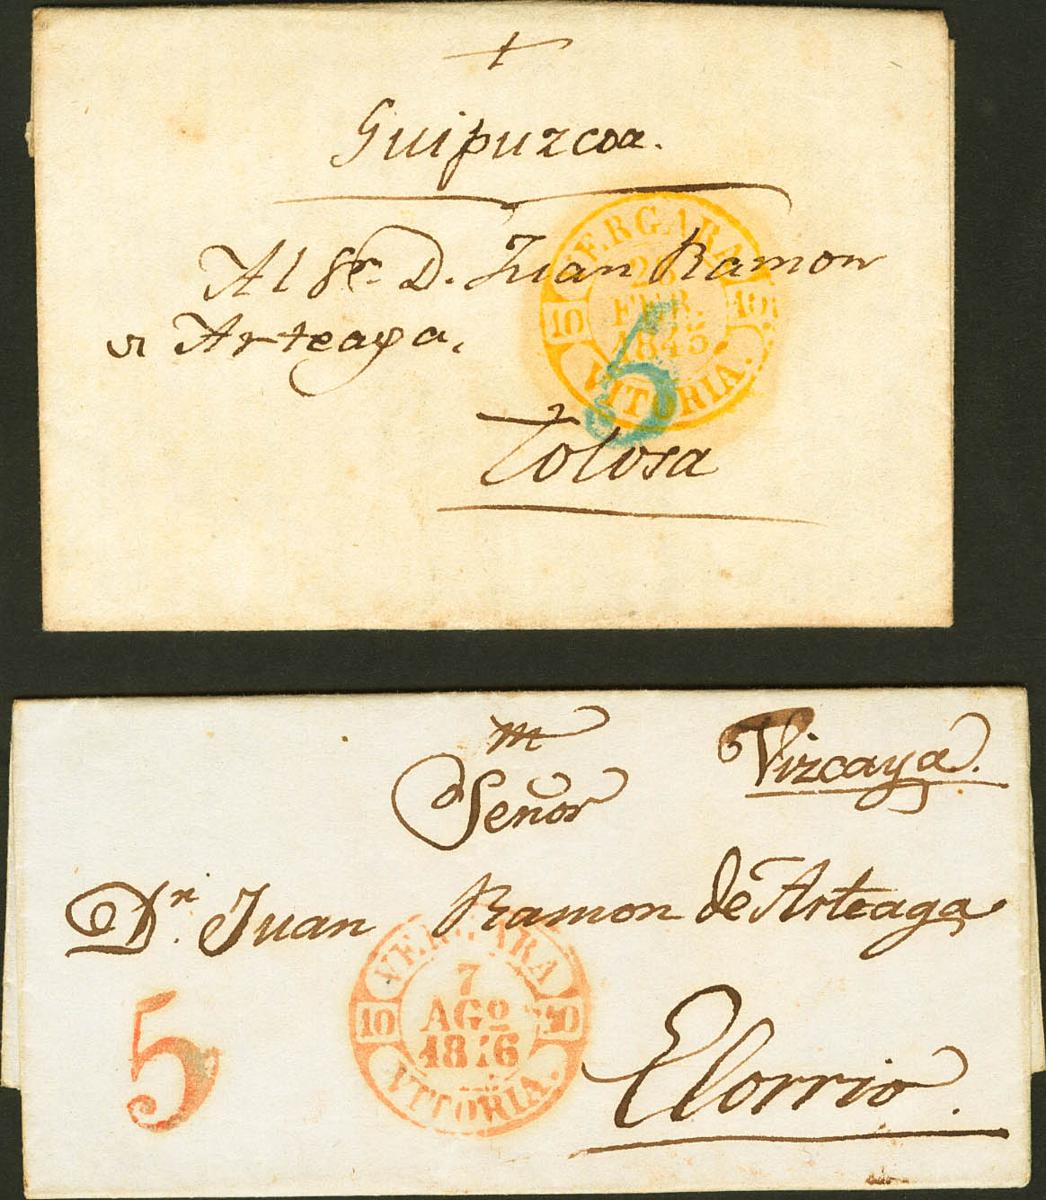 Guipuzcoa.
Al Sr. D. Juan Ramon
Arteaga,
Tolosa
VERGARA
10 FEB. 10
1845
VITORIA.
5
Señor
Vizcaya.
Dn. Juan Ramon de Arteaga
Elorrio.
5
VERGARA
7
10 AGO 10
VITORIA.